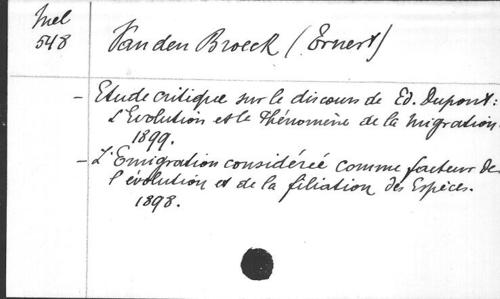 Mel
548
Van den Broeck (Ernest)
- Etude critique sur le discours de Ed. Dupont:
L'Evolution et le Phénomène de la migration.
1899.
- L'Emigration considérée comme facteur de
l'évolution et de la filiation des Espèces.
1898.